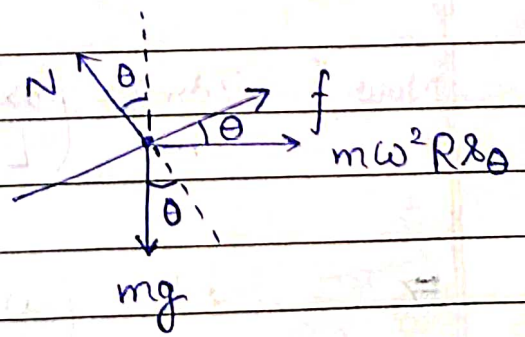 N θ f
θ
mω²Rsθ
θ
mg